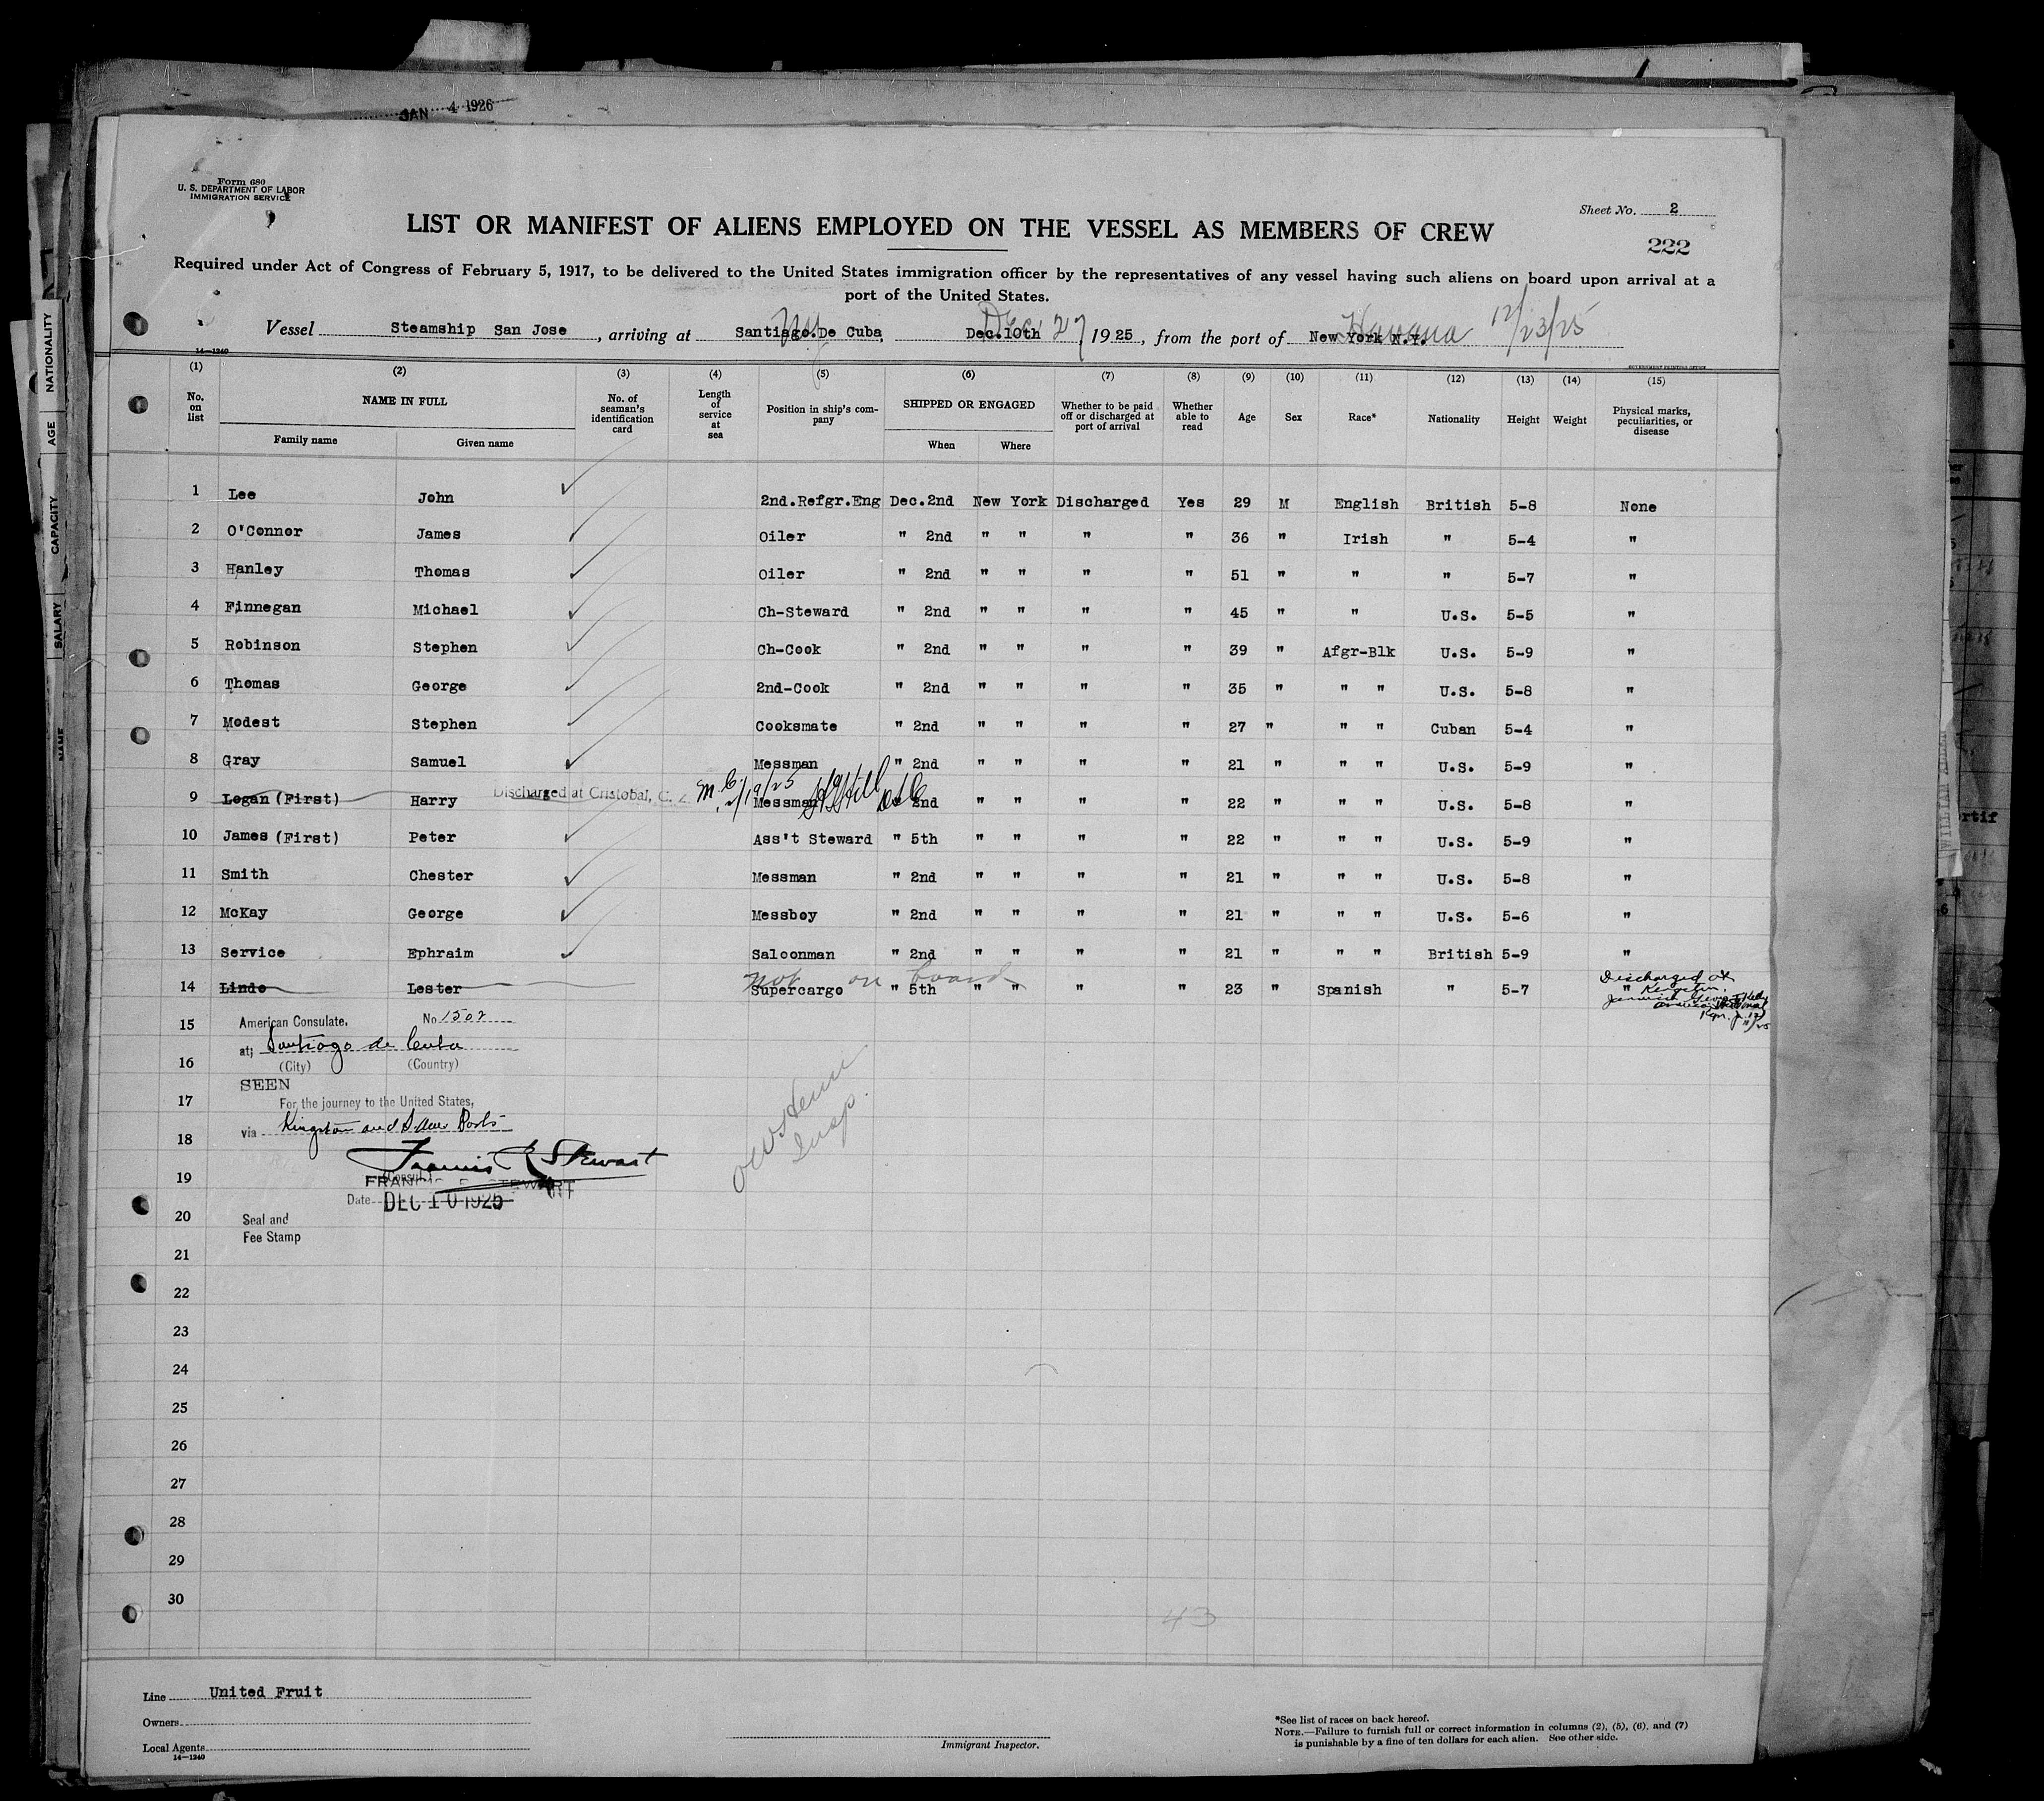 JAN 4 1926
Form 680
U. S. DEPARTMENT OF LABOR
IMMIGRATION SERVICE
Sheet No. 2
LIST OR MANIFEST OF ALIENS EMPLOYED ON THE VESSEL AS MEMBERS OF CREW
222
Required under Act of Congress of February 5, 1917, to be delivered to the United States immigration officer by the representatives of any vessel having such aliens on board upon arrival at a
port of the United States.
Vessel Steamship San Jose, arriving at Santiago.De Cuba, Dec.10th 1925, from the port of New York N.Y.
NY Dec 27 Havana 12/23/25
14-1240
GOVERNMENT PRINTING OFFICE
(1) (2) (3) (4) (5) (6) (7) (8) (9) (10) (11) (12) (13) (14) (15)
No. on list NAME IN FULL Family name Given name No. of seaman's identification card Length of service at sea Position in ship's company SHIPPED OR ENGAGED When Where Whether to be paid off or discharged at port of arrival Whether able to read Age Sex Race* Nationality Height Weight Physical marks, peculiarities, or disease
1 Lee John 2nd.Refgr.Eng Dec.2nd New York Discharged Yes 29 M English British 5-8 None
2 O'Connor James Oiler " 2nd " " " " 36 " Irish " 5-4 "
3 Hanley Thomas Oiler " 2nd " " " " 51 " " " 5-7 "
4 Finnegan Michael Ch-Steward " 2nd " " " " 45 " " U.S. 5-5 "
5 Robinson Stephen Ch-Cook " 2nd " " " " 39 " Afgr-Blk U.S. 5-9 "
6 Thomas George 2nd-Cook " 2nd " " " " 35 " " " U.S. 5-8 "
7 Modest Stephen Cooksmate " 2nd " " " " 27 " " " Cuban 5-4 "
8 Gray Samuel Messman " 2nd " " " " 21 " " " U.S. 5-9 "
Discharged at Cristobal, C. Z.
9 Logan (First) Harry Messman " 2nd " " " " 22 " " " U.S. 5-8 "
10 James (First) Peter Ass't Steward " 5th " " " " 22 " " " U.S. 5-9 "
11 Smith Chester Messman " 2nd " " " " 21 " " " U.S. 5-8 "
12 McKay George Messboy " 2nd " " " " 21 " " " U.S. 5-6 "
13 Service Ephraim Saloonman " 2nd " " " " 21 " " " British 5-9 "
not on board
Discharged at
Kingston,
14 Lindo Lester Supercargo " 5th " " " " 23 " Spanish " 5-7 "
15 American Consulate. No 1502
at; Santiago de Cuba
16 (City) (Country)
SEEN
17 For the journey to the United States,
via Kingston and Other Ports
18
Francis R Stewart
19 (Consul)
FRANCIS R. STEWART
Date DEC 10 1925
20 Seal and
Fee Stamp
21
22
23
24
25
26
27
28
29
30
Insp.
43
Line United Fruit
Owners
Local Agents
14-1240
Immigrant Inspector.
*See list of races on back hereof.
NOTE.—Failure to furnish full or correct information in columns (2), (5), (6), and (7)
is punishable by a fine of ten dollars for each alien. See other side.
NATIONALITY
AGE
CAPACITY
SALARY
NAME